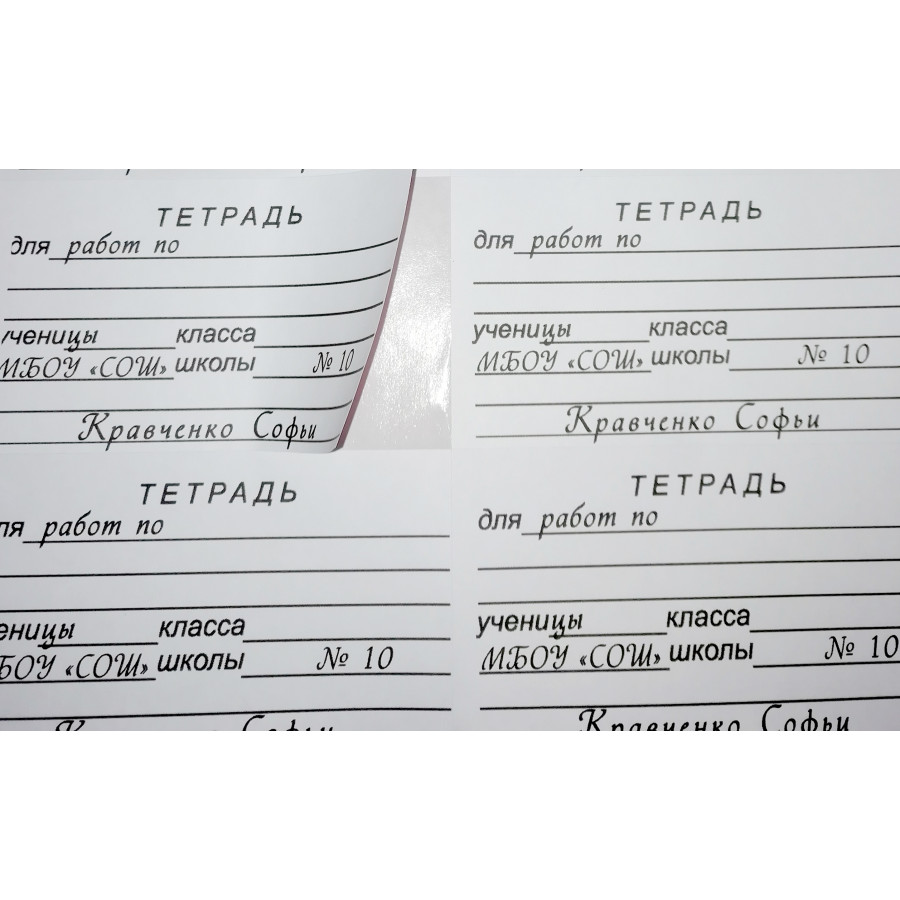 ТЕТРАДЬ
для работ по
ученицы класса
МБОУ «СОШ» школы № 10
Кравченко Софьи
ТЕТРАДЬ
для работ по
ученицы класса
МБОУ «СОШ» школы № 10
Кравченко Софьи
ТЕТРАДЬ
ля работ по
еницы класса
БОУ «СОШ» школы № 10
Кравченко Софьи
ТЕТРАДЬ
для работ по
ученицы класса
МБОУ «СОШ» школы № 10
Кравченко Софьи